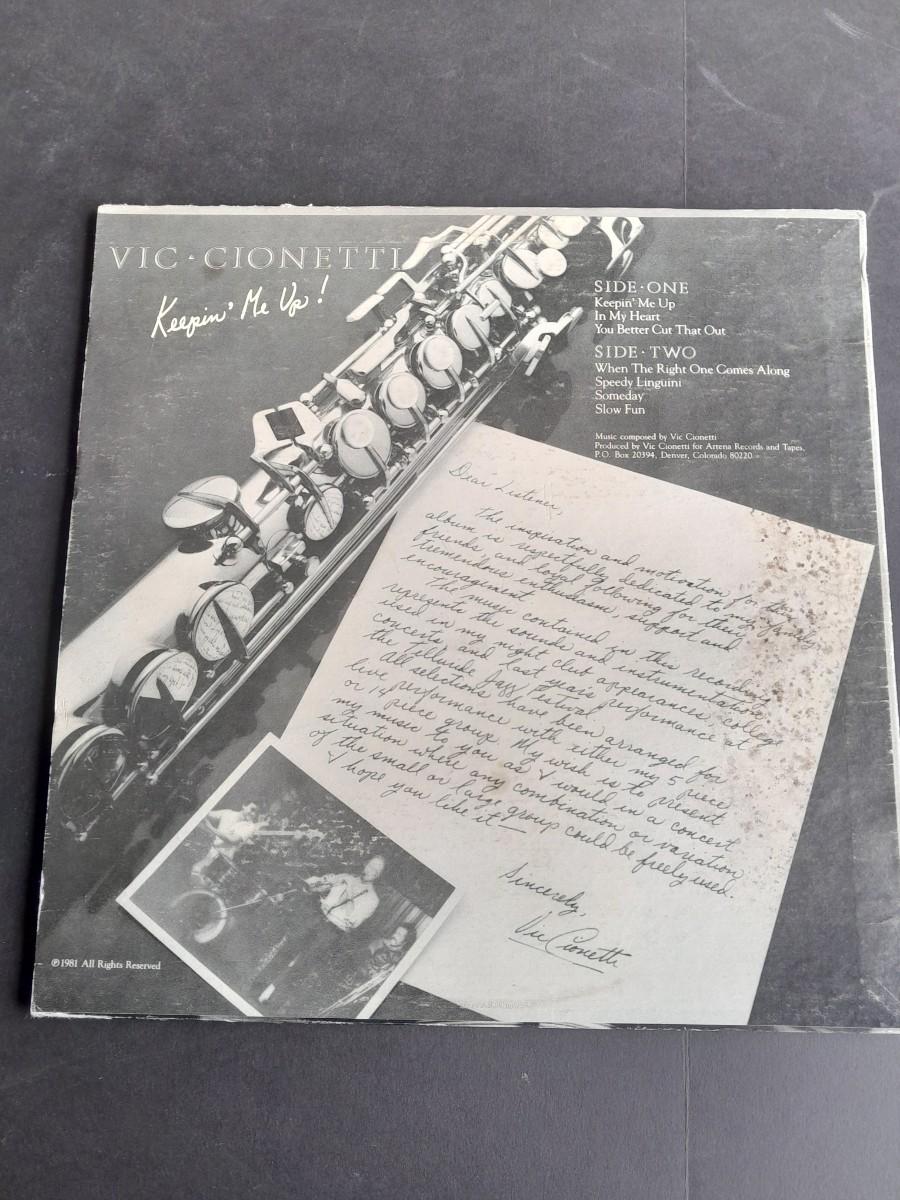 VIC · CIONETTI
Keepin' Me Up!
SIDE · ONE
Keepin' Me Up
In My Heart
You Better Cut That Out
SIDE · TWO
When The Right One Comes Along
Speedy Linguini
Someday
Slow Fun
Music composed by Vic Cionetti
Produced by Vic Cionetti for Artena Records and Tapes,
P.O. Box 20394, Denver, Colorado 80220
Dear Listener,
The inspiration and motivation for this
album is respectfully dedicated to my family,
friends, and loyal following for their
tremendous enthusiasm, support and
encouragement.
The music contained in this recording
represents the sounds and instrumentation
used in my night club appearances, college
concerts and last year's performance at
the Telluride Jazz Festival.
All selections have been arranged for
live performance with either my 5 piece
or 14 piece group. My wish is to present
my music to you as I would in a concert
situation where any combination or variation
of the small or large group could be freely used.
I hope you like it —
Sincerely,
Vic Cionetti
℗1981 All Rights Reserved